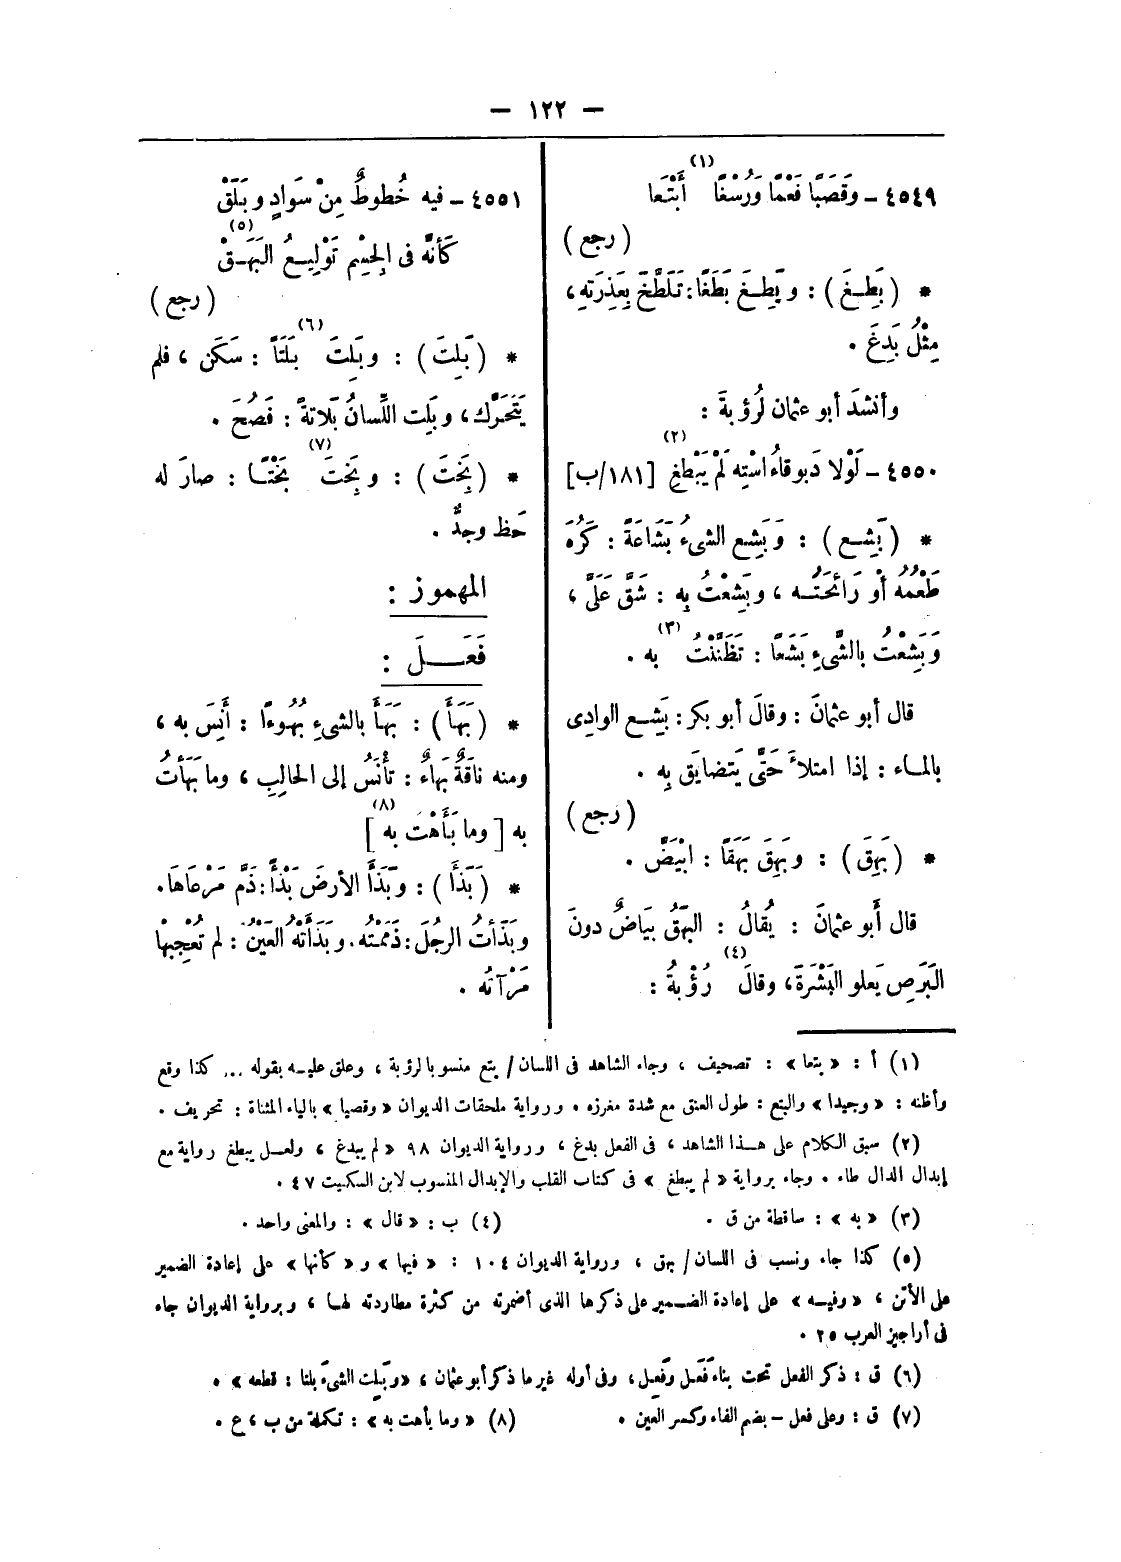 — ١٢٢ —
٤٥٤٩ – وَقَصَبًا فَعْمًا وَرُسْغًا (١) أَبْتَعَا
( رجع )
* ( بَطِـغَ ) : و بَطِـغَ بَطَغًا : تَلَطَّخَ بِعَذِرَتِهِ ،
مِثْلُ بَدِغَ .
وأنشدَ أبو عثمان لرُؤبةَ :
٤٥٥٠ – لَوْلا دَبوقاءُ اسْتِه لَمْ يَبْطَغِ (٢) [ ١٨١/ب ]
* ( بَشِـع ) : وَبَشِع الشىءُ بَشَاعَةً : كَرُهَ
طَعْمُهُ أوْ رَائحَتُـه ، وبَشِعْتُ بِه : شَقَّ عَلَىَّ ،
وَبَشِعْتُ بالشَّىءِ بَشَعًا : تَظَنَّنْتُ (٣) به .
قال أبو عثمانَ : وقالَ أبو بكر : بَشِـع الوادِى
بالمـاء : إذا امتلأَ حَتَّى يَتضايَق بِه .
( رجع )
* ( بَهِقَ ) : وبَهِقَ بَهَقًا : ابْيَضَّ .
قال أبو عثمانَ : يُقالُ : البَهَقُ بيَاضٌ دونَ
البَرَصِ يَعلو البَشْرَةَ ، وقالَ (٤) رُؤْبةُ :
٤٥٥١ – فيه خُطوطٌ مِنْ سَوادٍ وبَلَقْ
كَأنَّه فى الجِسْمِ تَوْلِيـعُ البَهَـقْ (٥)
( رجع )
* ( بَلِتَ ) : وبَلِتَ (٦) بَلَتًا : سَكَن ، فلم
يَتَحَرَّك ، وبَلِت اللِّسانُ بَلاتةً : فَصُحَ .
* ( بَخِتَ ) : وبَخِتَ (٧) بَخْتًـا : صارَ له
حَظ وجدٌّ .
المهموز :
فَعَـــلَ :
* ( بَهَأَ ) : بَهَأَ بالشىءِ بُهُوءًا : أَنِسَ به ،
ومنه ناقَةٌ بَهاءٌ : تأْنَسُ إلى الحالِبِ ، وما بَهَأتُ
به [ وما بَأَهْت به (٨) ]
* ( بَذَأَ ) : وبَذَأَ الأرضَ بَذْأً : ذَمَّ مَرْعَاهَا .
وبَذَأتُ الرجُلَ : ذَمَمْتُه . وبَذَأتْهُ العَيْنُ : لم تُعْجِبْها
مَرْآتُه .
(١) أ : « بتعا » : تصحيف ، وجاء الشاهد فى اللسان / بتع منسوبا لرؤبة ، وعلق عليـه بقوله ... كذا وقع
وأظنه : « وجيدا » والبتع : طول العنق مع شدة مغرزه . ورواية ملحقات الديوان « وقصيا » بالياء المثناة : تحريف .
(٢) سبق الكلام على هـذا الشاهد ، فى الفعل بدغ ، ورواية الديوان ٩٨ « لم يبدغ ، ولعـل يبطغ رواية مع
إبدال الدال طاء . وجاء برواية « لم يبطغ » فى كتاب القلب والإبدال المنسوب لابن السكيت ٤٧ .
(٣) « به » : ساقطة من ق .
(٤) ب : « قال » : والمعنى واحد .
(٥) كذا جاء ونسب فى اللسان / بهق ، ورواية الديوان ١٠٤ : « فيها » و « كأنها » على إعادة الضمير
على الأتن ، « وفيـه » على إعادة الضـمير على ذكرها الذى أضمرته من كثرة مطاردته لهـا ، وبرواية الديوان جاء
فى أراجيز العرب ٢٥ .
(٦) ق : ذكر الفعل تحت بناء فَعَل وفَعِل ، وفى أوله غير ما ذكر أبو عثمان ، « وبَلَت الشىءَ بلتا : قطعه » .
(٧) ق : وعلى فعل – بضم الفاء وكسر العين .
(٨) « وما بأهت به » : تكملة من ب ، ع .